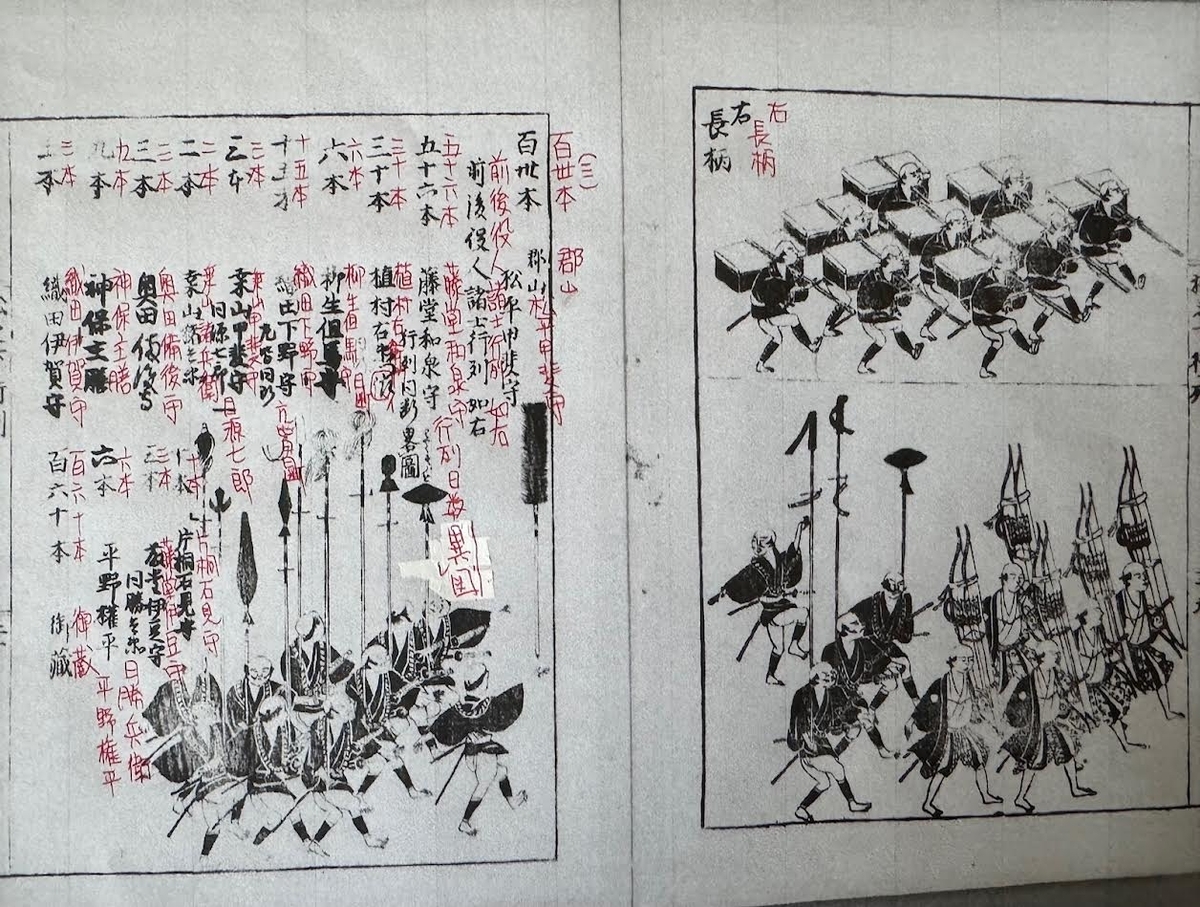 右
長柄
右
長柄
百世本
(三)
郡山
松平甲斐守
百丗本
郡山
松平甲斐守
前後役人
諸士行列
如右
前後役人
諸士行列
如右
五十六本
藤堂和泉守
行列同断
五十六本
藤堂和泉守
行列同断
畧圖
異国
三十本
植村右
三十本
植村右
六本
柳生但馬守
六本
柳生但馬守
十五本
織田下野守
織田下野守
三本
桑山甲斐守
三本
桑山甲斐守
同源七郎
二本
桑山
二本
桑山
三本
奥田備後守
三本
奥田備後守
九本
神保主膳
九本
神保主膳
三本
織田伊賀守
三本
織田伊賀守
片桐石見守
片桐石見守
三本
藤堂伊豆守
三本
藤堂伊豆守
同勝兵衛
六本
平野権平
六本
平野権平
百六十本
御蔵
百六十本
御藏